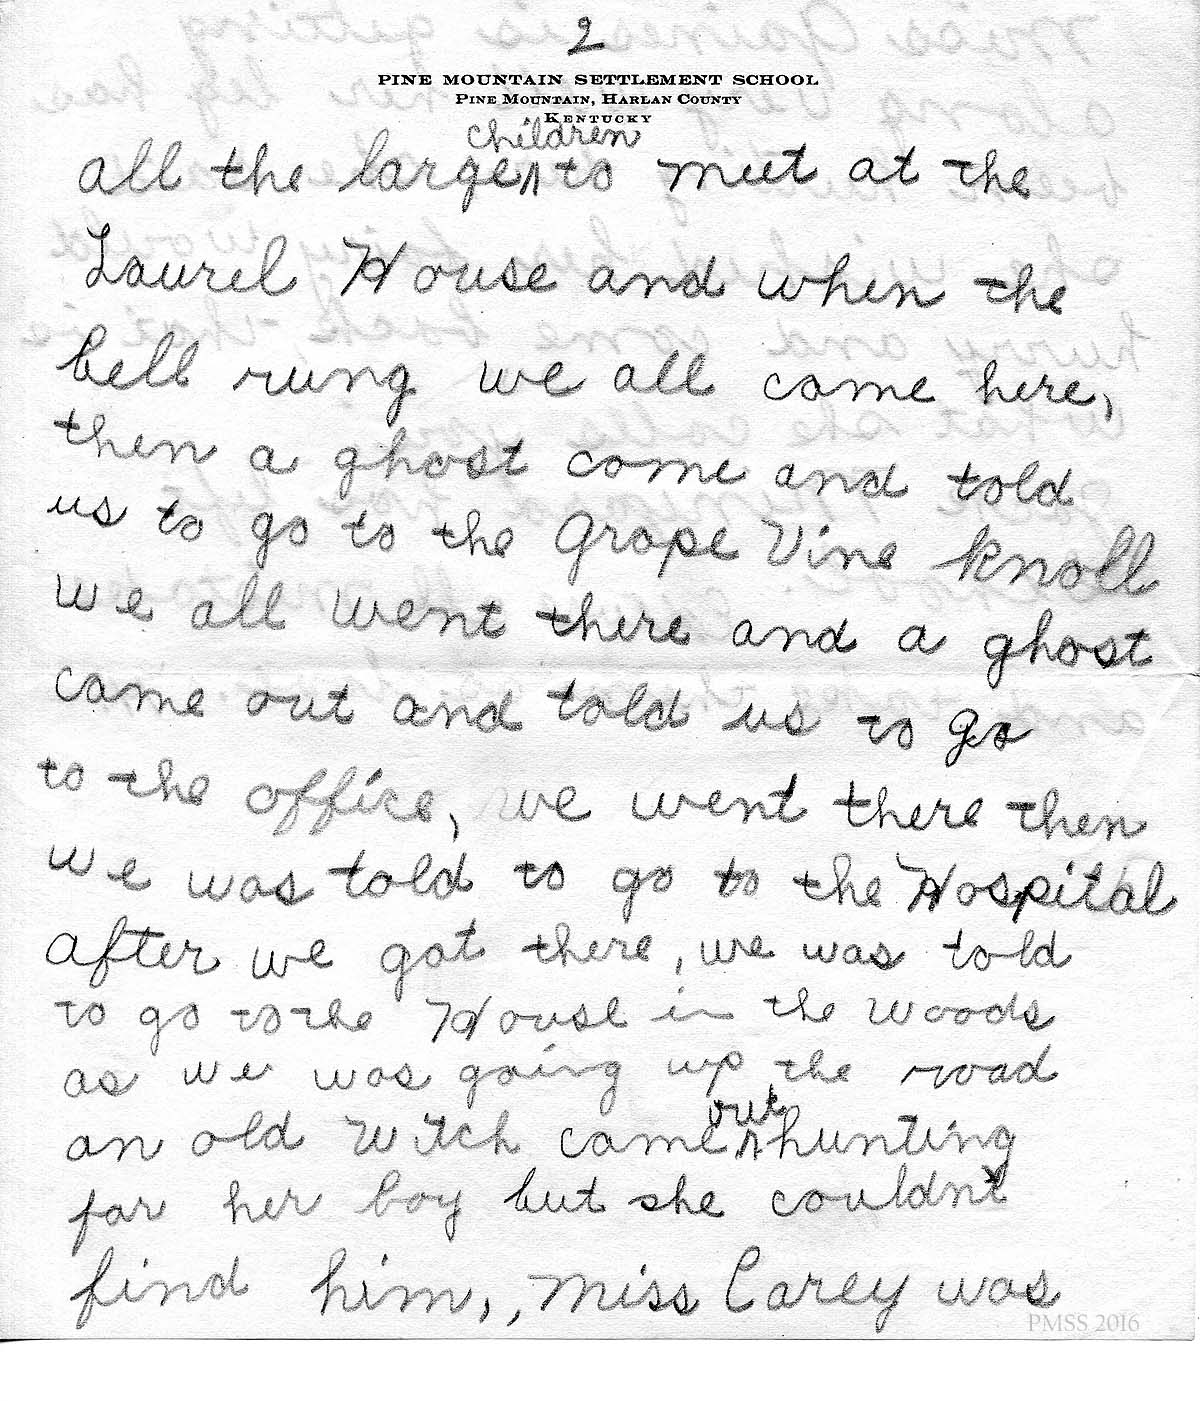 2
PINE MOUNTAIN SETTLEMENT SCHOOL
PINE MOUNTAIN, HARLAN COUNTY
KENTUCKY
children
all the large ^ to meet at the
Laurel House and when the
bell rung we all came here,
then a ghost come and told
us to go to the Grape Vine knoll
we all went there and a ghost
came out and told us to go
to the office, we went there then
we was told to go to the Hospital
after we got there, we was told
to go to the House in the woods
as we was going up the road
out
an old witch came ^ hunting
for her boy but she couldn't
find him,, Miss Carey was
PMSS 2016